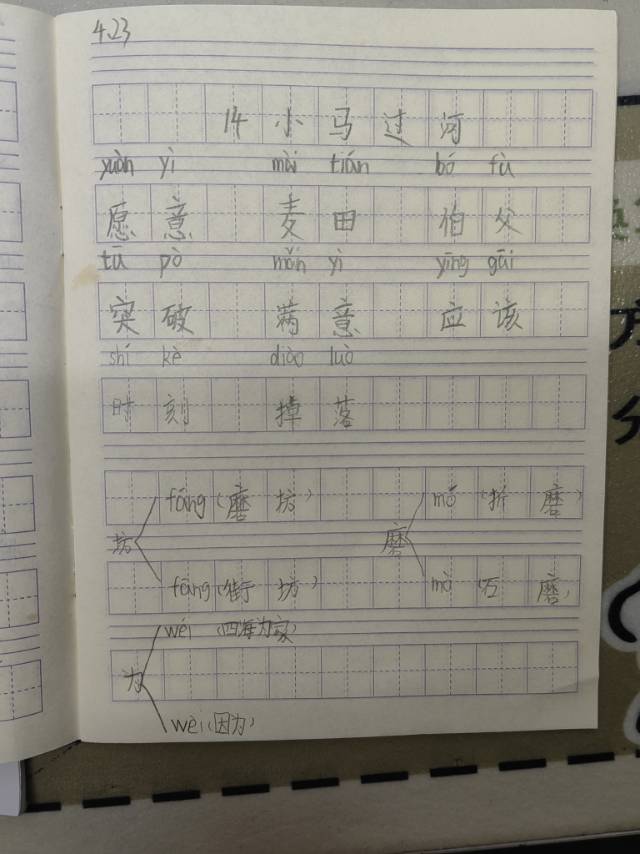 4.23
14 小马过河
yuàn yì mài tián bó fù
愿意 麦田 伯父
tū pò mǎn yì yīng gūi
突破 满意 应该
shí kè diào luò
时刻 掉落
fáng(磨坊) mó(折磨)
坊 磨
fāng(街坊) mò(石磨)
wéi(四海为家)
为
wèi(因为)